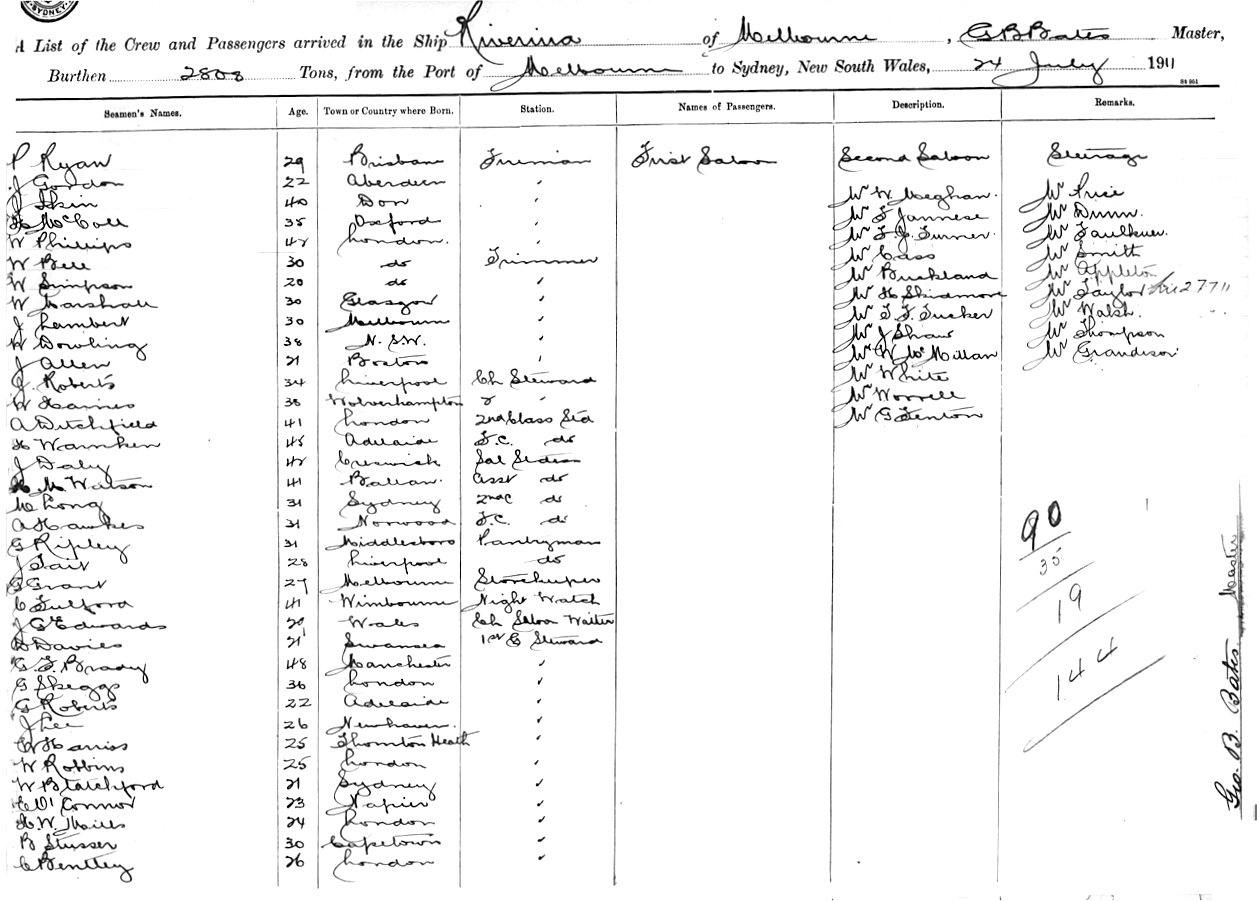 SYDNEY
A List of the Crew and Passengers arrived in the Ship Riverina of Melbourne, G B Bates Master,
Burthen 2808 Tons, from the Port of Melbourne to Sydney, New South Wales, 24 July 1911
Seamen's Names. Age. Town or Country where Born. Station. Names of Passengers. Description. Remarks.
P Ryan 29 Brisbane Fireman First Saloon Second Saloon Steerage
J Gordon 22 Aberdeen ✓ Mr W Meghan. Mr Price
J Skin 40 Don ✓ Mr F Jannese Mr Dunn.
McColl 35 Oxford ✓ Mr F. J. Turner. Mr Faulkner.
W Phillips 42 London. ✓ Mr Cass Mr Smith
W Bell 30 do Trimmer Mr Buckland Mr Appleton
W Simpson 20 do ✓ Mr H Skidmore Mr Taylor
W Marshall 30 Glasgow ✓ Mr T. F. Tucker Mr Walsh.
J Lambert 30 Melbourn ✓ Mr J Shaw Mr Thompson
W Dowling 38 N. S.W. ✓ Mr W McMillan Mr Grandison
J Allen 21 Boston ✓ Mr White
J. Roberts 34 Liverpool Ch Steward Mr Worrell
W Haines 38 Wolverhampton 2 ✓ Mr G Fenton
A Ditchfield 41 London 2nd Class Std
H Warnken 45 Adelaide F.C. do
J Daly 42 Creswick Sal Stdess
M Watson 41 Ballan. Asst do
M Long 31 Sydney 2nd C do
A Hawkes 31 Norwood F.C. do
G Ripley 31 Middlesboro Pantryman
J Tait 28 Liverpool do
G Grant 27 Melbourne Storekeeper
C Fulford 41 Wimbourne Night Watch
J G Edwards 20 Wales Ch Saloon Waiter
D Davies 21 Swansea 1st C Steward
G. F. Brady 48 Manchester ✓
G Skeggs 36 London ✓
G Roberts 22 Adelaide ✓
J Lee 26 Newhaven. ✓
W Harriss 25 Thornton Heath ✓
W Robbins 25 London ✓
W Blatchford 21 Sydney ✓
O'Connor 23 Napier ✓
H. W. Mills 24 London ✓
B Stusser 30 Capetown ✓
C Bentley 26 London ✓
90
35
19
144
Geo. B. Bates. Master